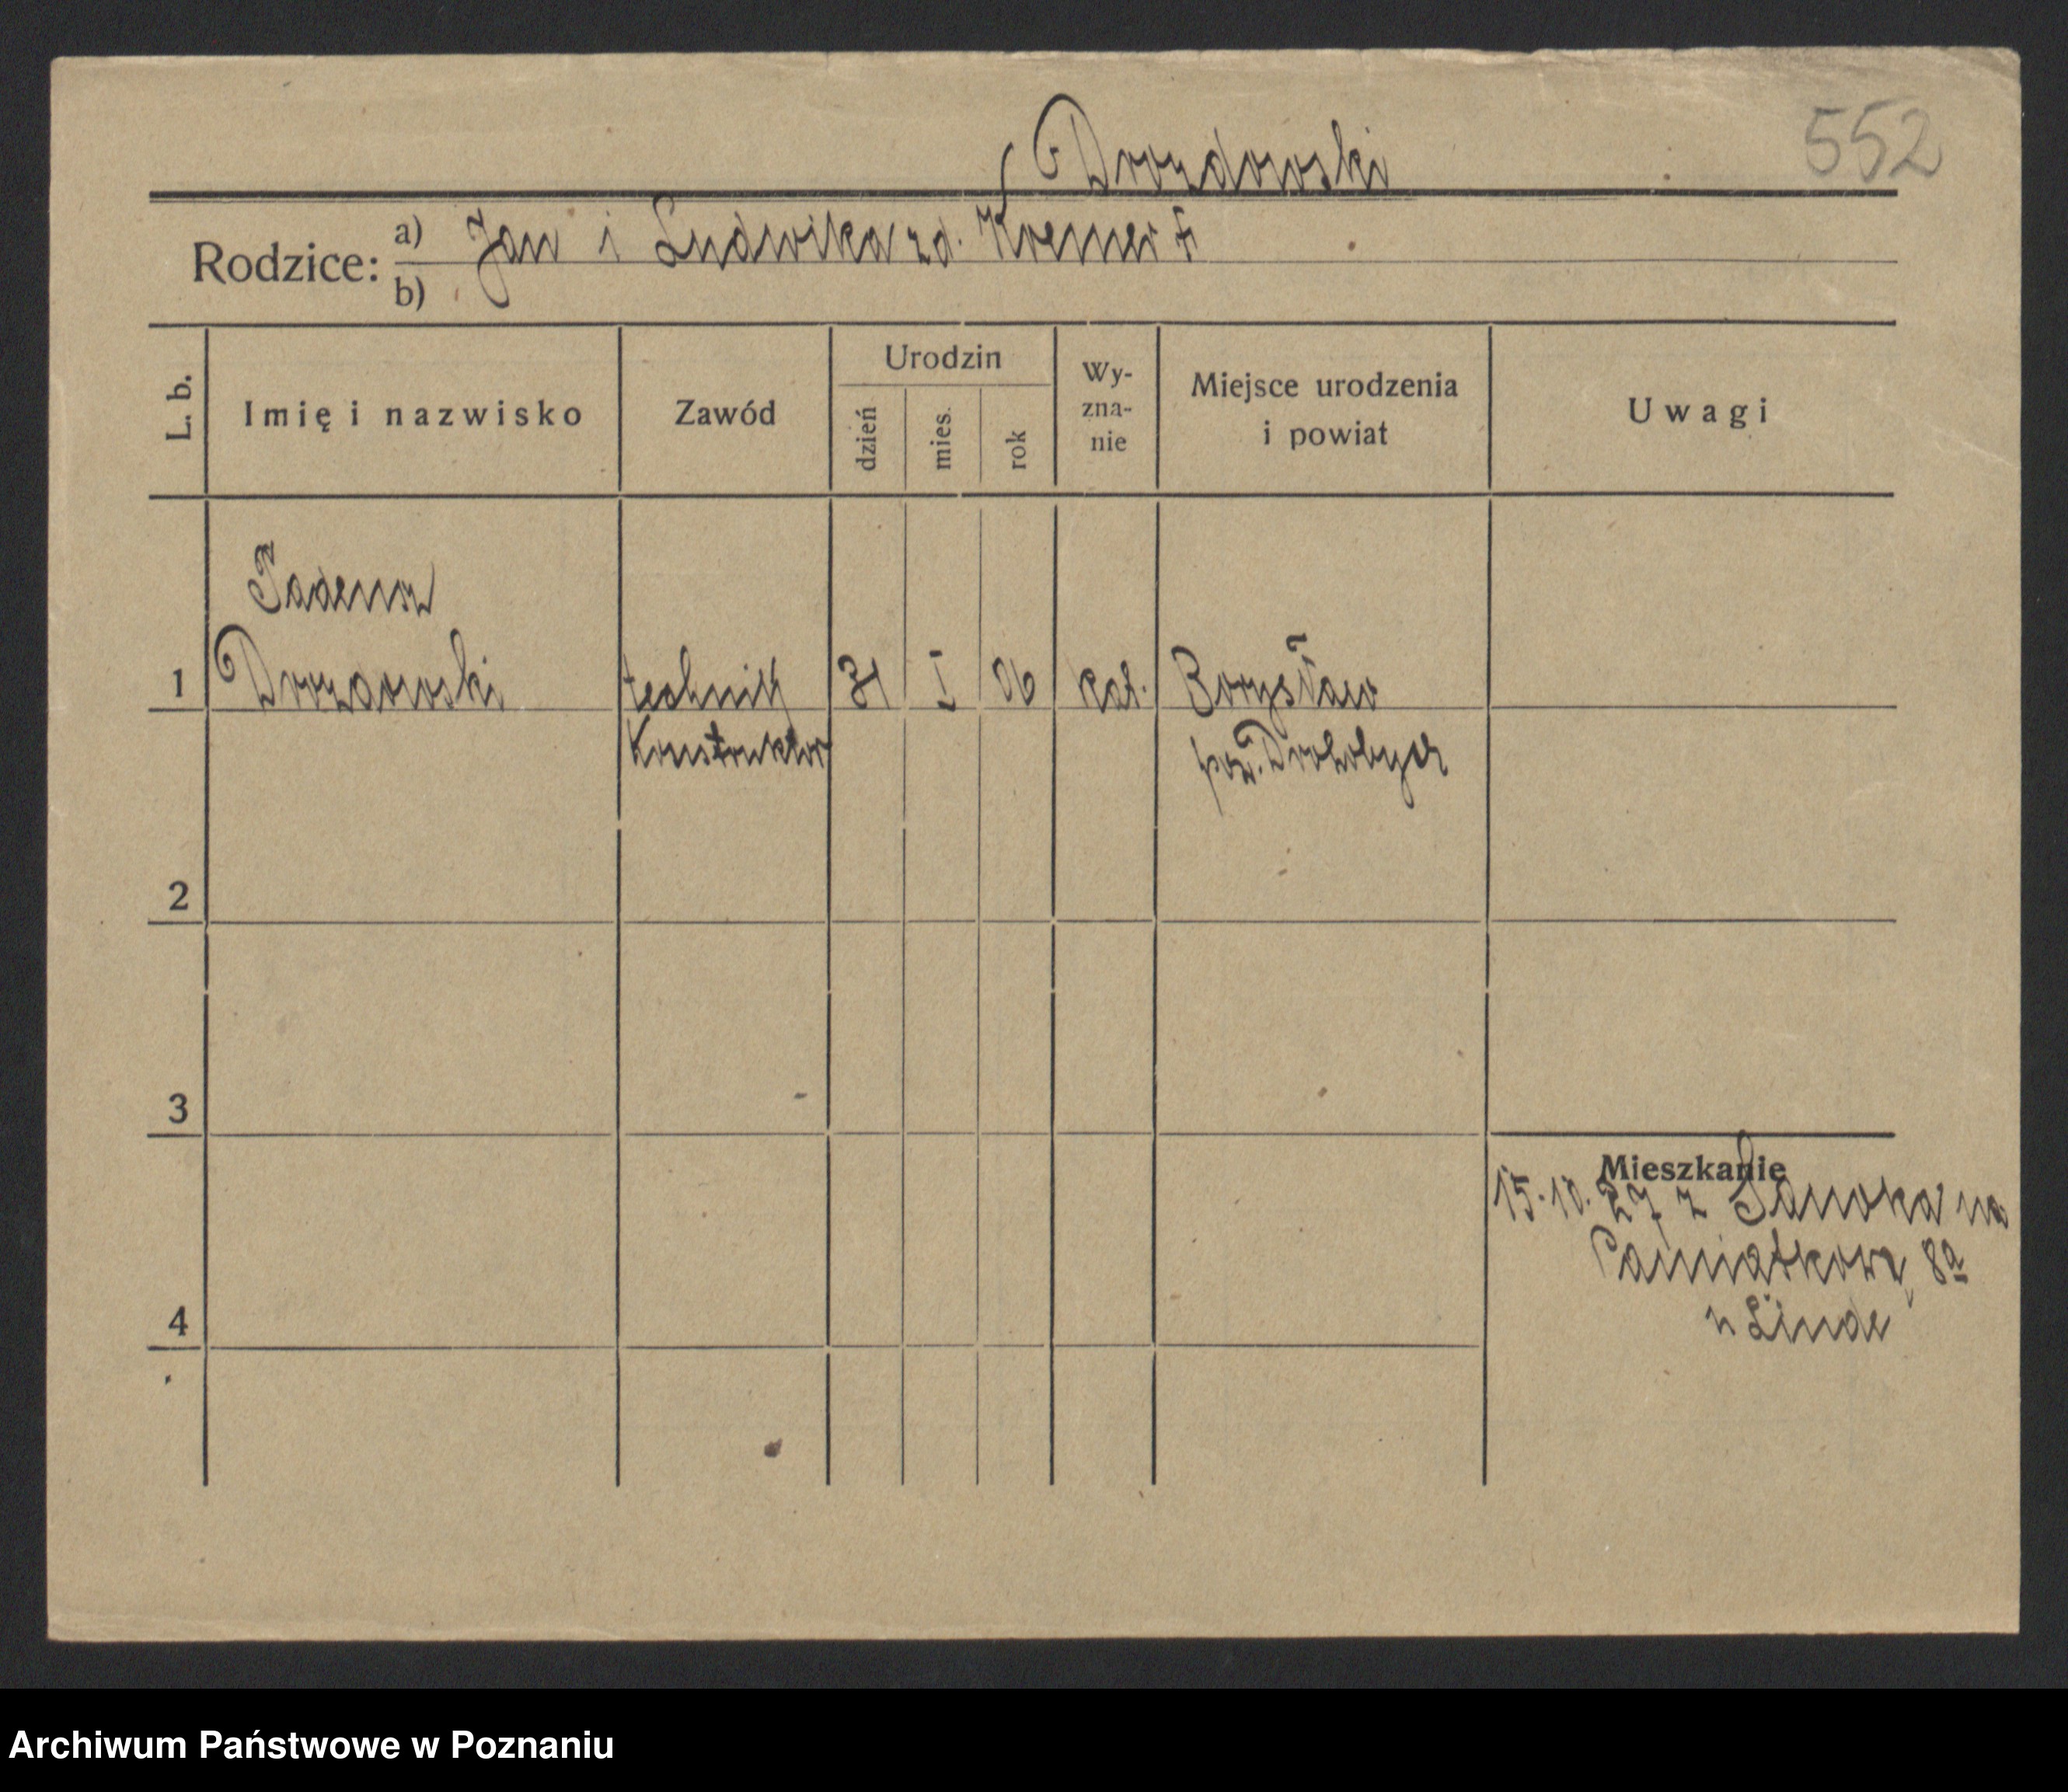 552
Drozdowski
Rodzice: a) Jan i Ludwika zd. Kremer
b)
L. b.
Imię i nazwisko
Zawód
Urodzin
dzień
mies.
rok
Wy-
zna-
nie
Miejsce urodzenia
i powiat
Uwagi
Tadeusz
1 Drozdowski technik 31 I 06 kat. Borysław
Konstruktor pow. Drohobycz
2
3
Mieszkanie
15.10.27 z Sanoka na
Pamiątkową 8a
u Linde
4
Archiwum Państwowe w Poznaniu